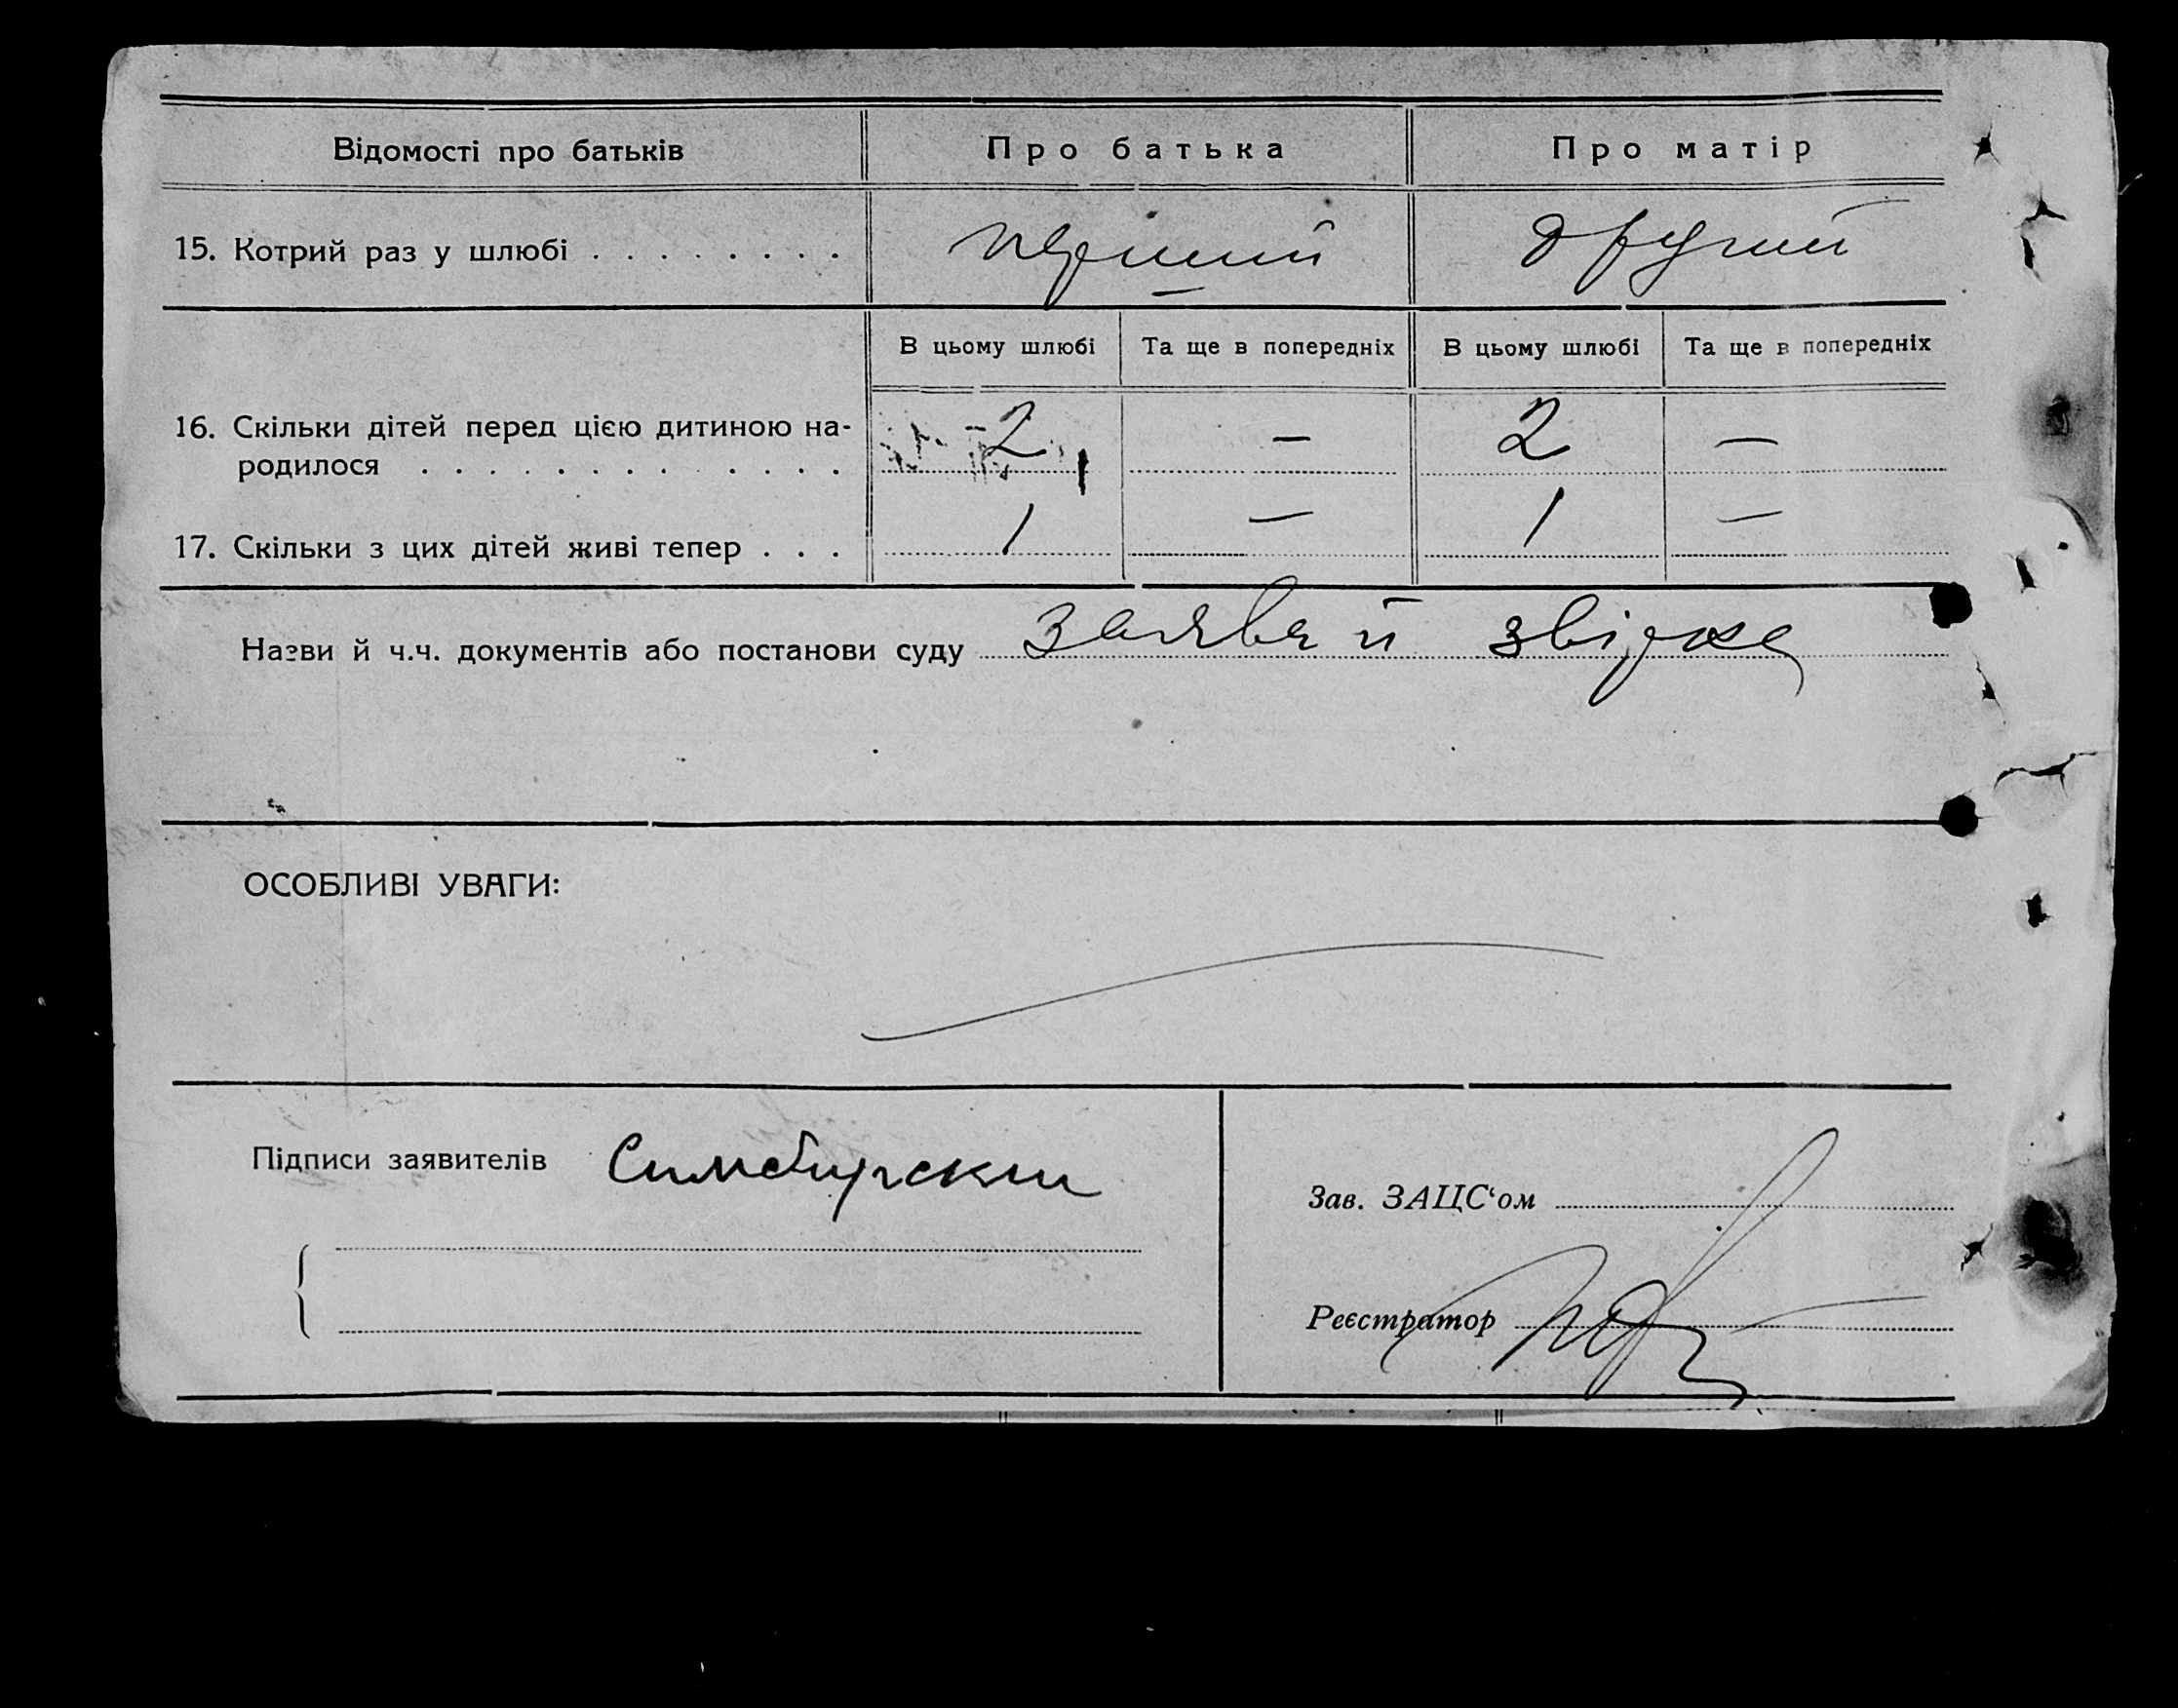 Відомості про батьків Про батька Про матір
15. Котрий раз у шлюбі . . . . . . . . перший другий
В цьому шлюбі Та ще в попередніх В цьому шлюбі Та ще в попередніх
16. Скільки дітей перед цією дитиною на- 2 — 2 —
родилося . . . . . . . . . . . . .
17. Скільки з цих дітей живі тепер . . . 1 — 1 —
Назви й ч.ч. документів або постанови суду заява й звірка
ОСОБЛИВІ УВАГИ:
Підписи заявителів Симбирский
Зав. ЗАЦС‘ом
Реєстратор